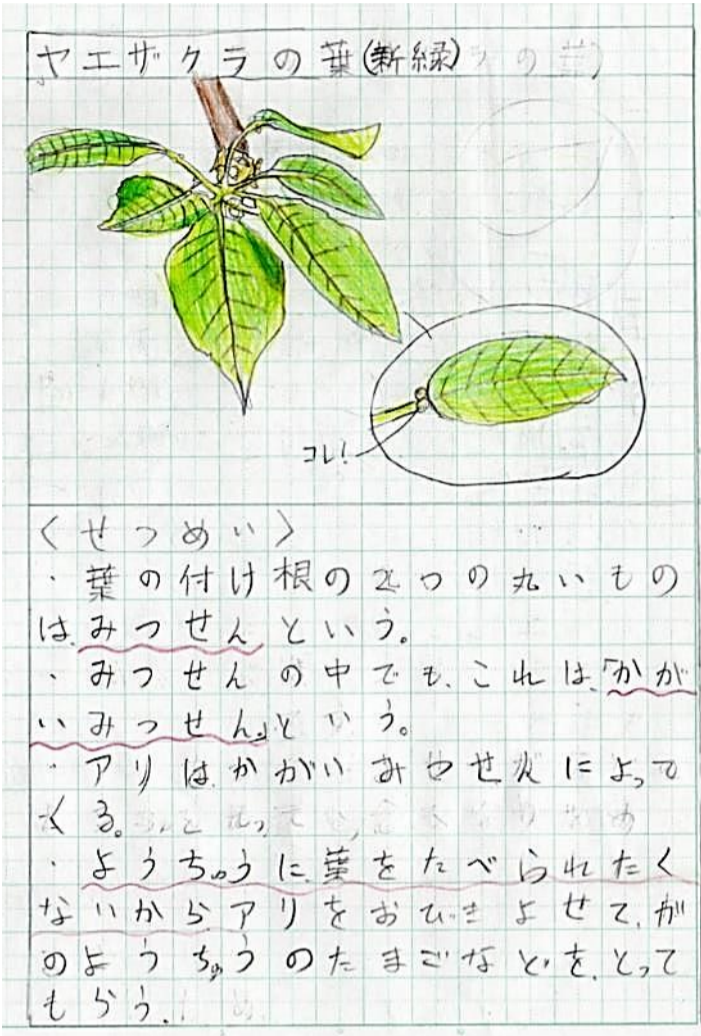 ヤエザクラの葉(新緑)
コレ!
〈せつめい〉
・葉の付け根の2つの丸いもの
は、みつせんという。
・みつせんの中でも、これは、「かが
いみつせん」という。
・アリはかがいみつせんによって
くる。
・ようちゅうに、葉をたべられたく
ないからアリをおびきよせて、が
のようちゅうのたまごなどを、とって
もらう。